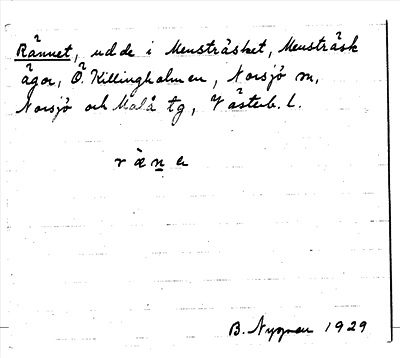 Rännet, udde i Mensträsket, Mensträsk
ägor, Ö. Killingholmen, Norsjö sn,
Norsjö och Malå tg, Västerb. l.
r æ n e
B. Nygren 1929